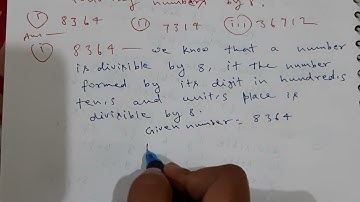 numbers by 8.
(i) 8364 (ii) 7314 (iii) 36712
Ans—
(i) 8364 — we know that a number
is divisible by 8, if the number
formed by its digit in hundreds
tens, and units place is
divisible by 8.
Given number = 8364